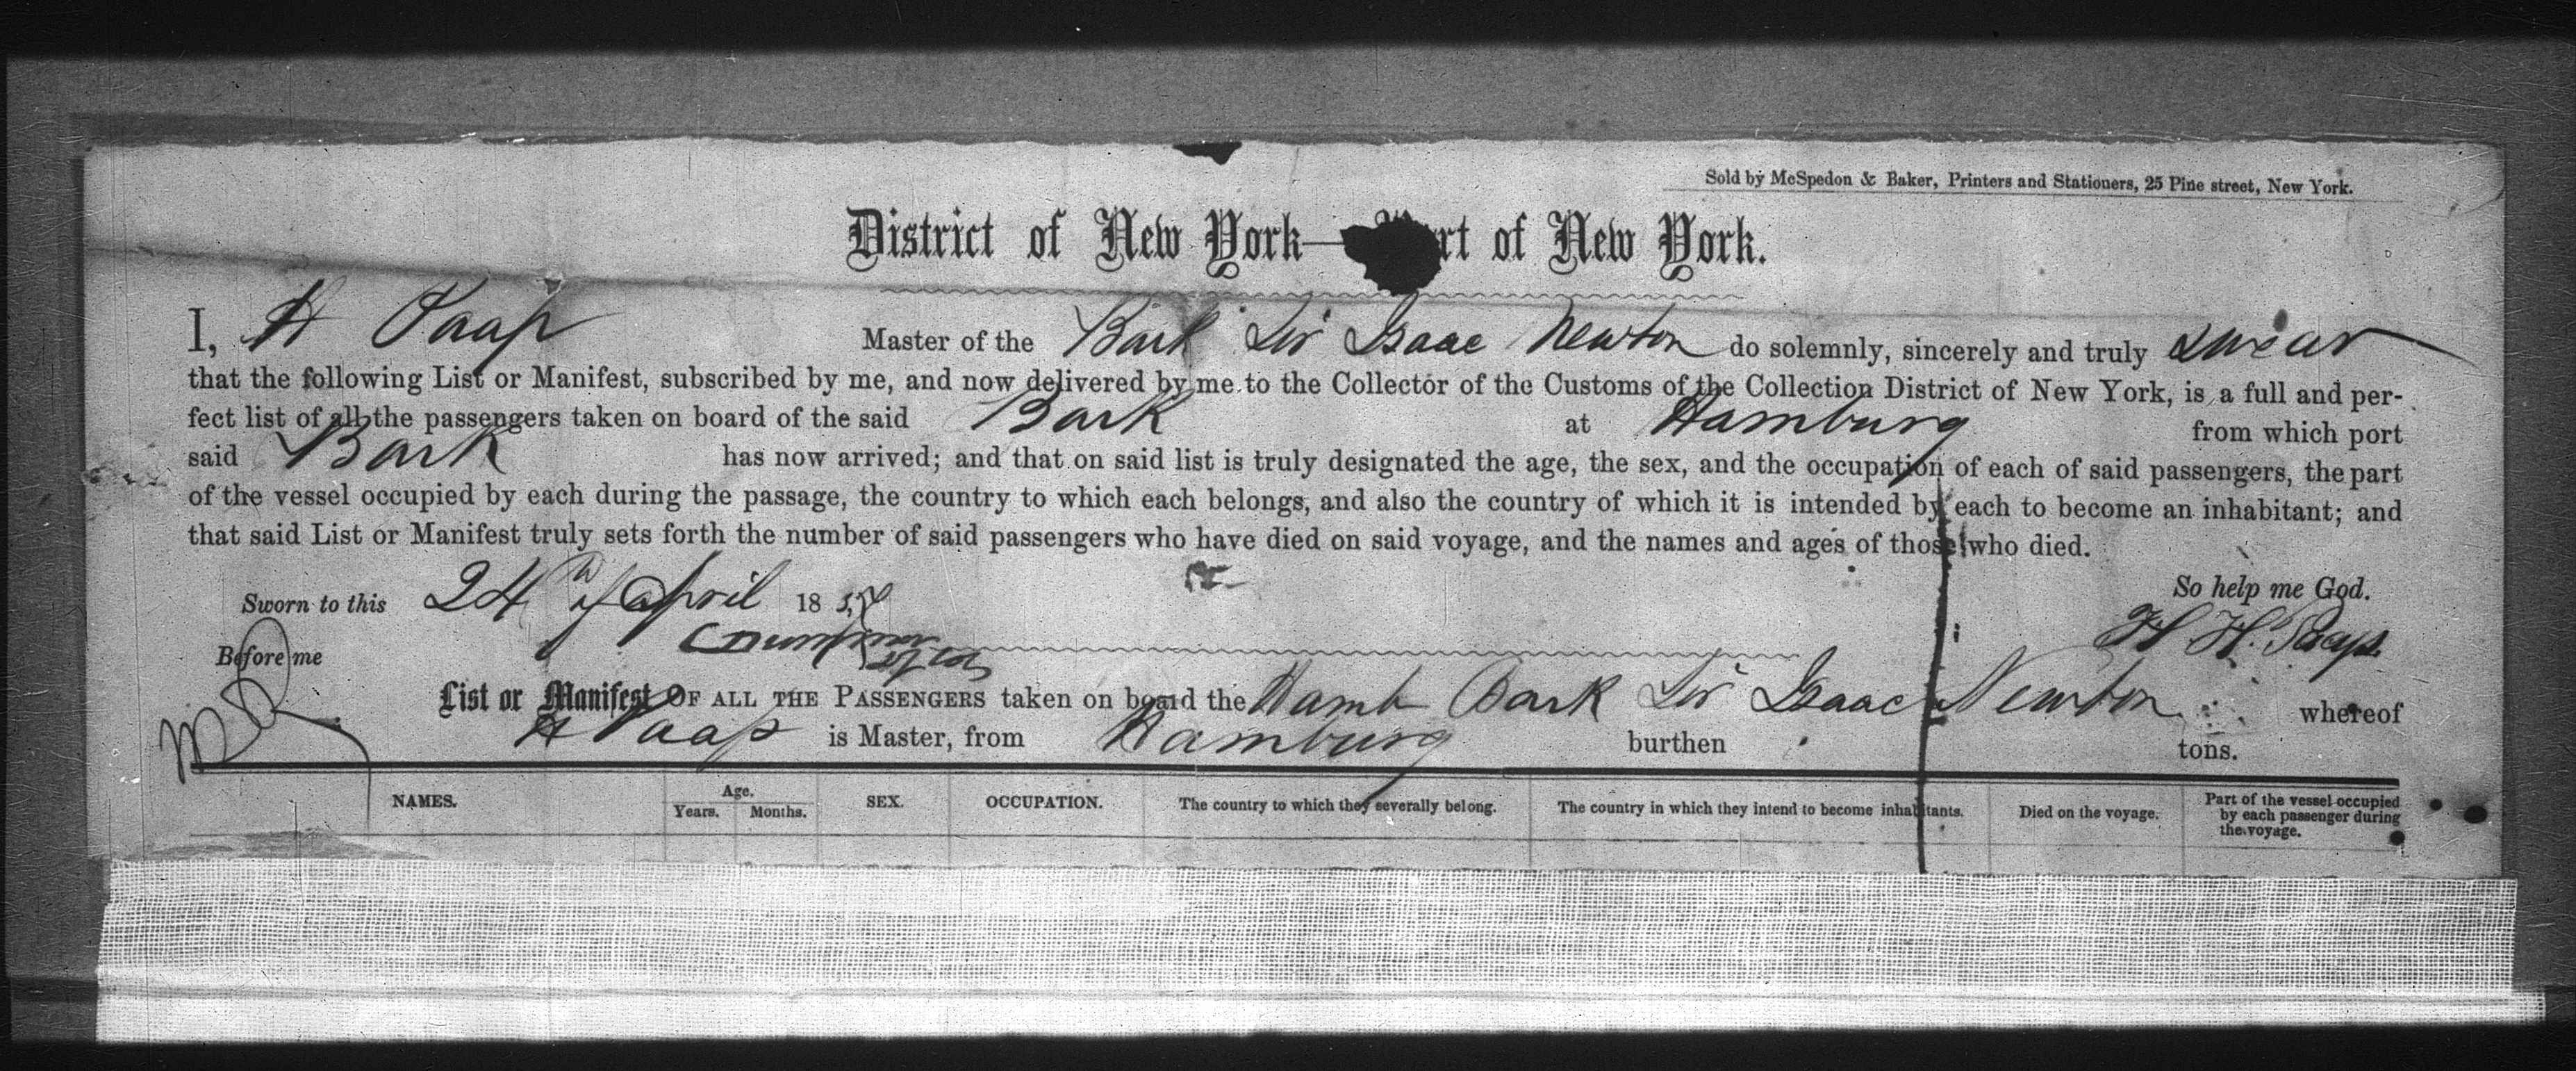 Sold by McSpedon & Baker, Printers and Stationers, 25 Pine street, New York.
District of New York— rt of New York.
I, H Paap Master of the Bark Sir Isaac Newton do solemnly, sincerely and truly swear
that the following List or Manifest, subscribed by me, and now delivered by me to the Collector of the Customs of the Collection District of New York, is a full and per-
fect list of all the passengers taken on board of the said Bark at Hamburg from which port
said Bark has now arrived; and that on said list is truly designated the age, the sex, and the occupation of each of said passengers, the part
of the vessel occupied by each during the passage, the country to which each belongs, and also the country of which it is intended by each to become an inhabitant; and
that said List or Manifest truly sets forth the number of said passengers who have died on said voyage, and the names and ages of those who died.
So help me God.
Sworn to this 24th of April 1857
H H. Paap
Before me
List or Manifest OF ALL THE PASSENGERS taken on board the Hamb Bark Sir Isaac Newton whereof
H Paap is Master, from Hamburg burthen tons.
NAMES. Age. Years. Months. SEX. OCCUPATION. The country to which they severally belong. The country in which they intend to become inhabitants. Died on the voyage. Part of the vessel occupied by each passenger during the voyage.